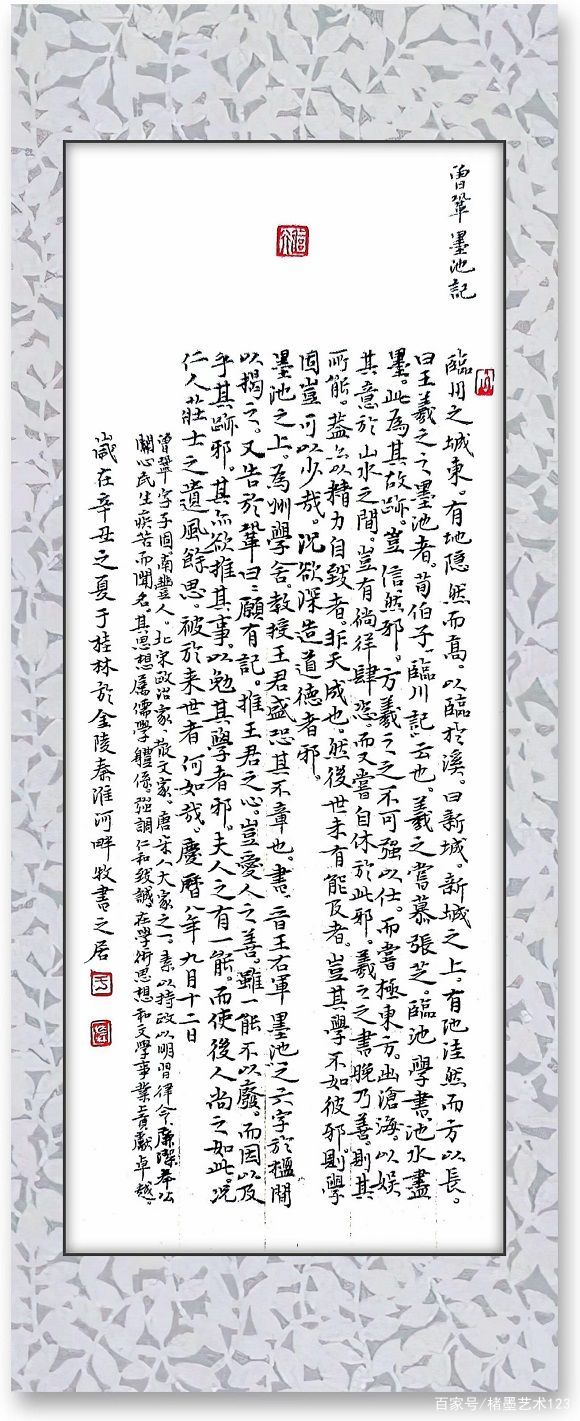 曾鞏墨池記
臨川之城東。有地隐然而高。以臨於溪。曰新城。新城之上。有池洼然而方以長。
曰王羲之之墨池者。荀伯子“臨川記”云也。羲之嘗慕張芝。臨池學書。池水盡
墨。此為其故跡。豈信然邪。方羲之之不可强以仕。而嘗極東方。出滄海。以娱
其意於山水之間。豈有徜徉肆恣。而又嘗自休於此邪。羲之之書晚乃善。則其
所能。蓋亦以精力自致者。非天成也。然後世未有能及者。豈其學不如彼邪。則學
固豈可以少哉。况欲深造道德者邪。
墨池之上。為州學舍。教授王君盛恐其不章也。書。晋王右軍墨池之六字於楹間
以揭之。又告於鞏曰：願有記。推王君之心。豈愛人之善。雖一能不以廢。而因以及
乎其跡邪。其亦欲推其事。以勉其學者邪。夫人之有一能。而使後人尚之如此。况
仁人莊士之遺風餘思。被於来世者何如哉。慶曆八年九月十二日
曾鞏字子固。南豐人。北宋政治家、散文家。唐宋八大家之一。素以持政以明習律令。廉潔奉公
關心民生疾苦而聞名。其思想属儒學體係。强調仁和致誠。在學術思想和文學事業貢獻卓越。
嵗在辛丑之夏于桂林於金陵秦淮河畔牧書之居
百家号/楮墨艺术123